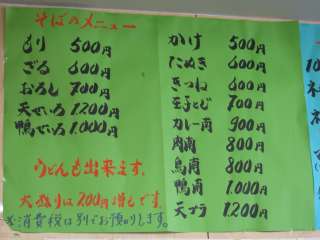 そばのメニュー
もり 500円
ざる 600円
おろし 700円
天せいろ 1200円
鴨せいろ 1000円
うどんも出来ます.
大盛りは200円増しです.
※消費税は別でお預りします。
かけ 500円
たぬき 600円
きつね 600円
玉子とじ 700円
カレー南 900円
肉南 800円
鳥南 800円
鴨南 1.000円
天プラ 1.200円